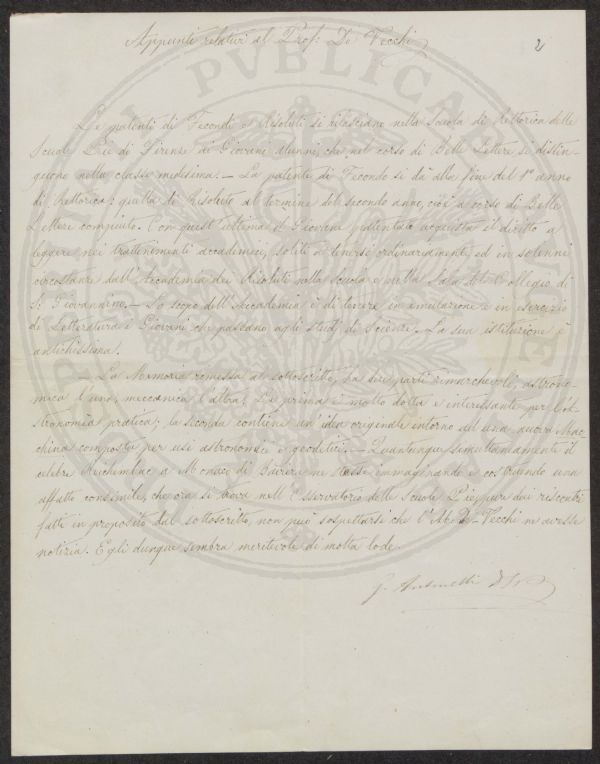 Appunti relativi al Prof: De Vecchi
2
Le patenti di Fecondi o Risoluti si rilasciano nella Scuola di Rettorica delle
Scuole Pie di Firenze a' Giovani Alunni, che nel corso di Belle Lettere si distin-
guono nella classe medesima. — La patente di Fecondo si dà alla fine del 1º anno
di Rettorica: quella di Risoluto al termine del secondo anno, cioè a corso di Belle
Lettere compiuto. Con quest'ultima il Giovine patentato acquista il diritto a
leggere nei trattenimenti accademici, soliti a tenersi ordinariamente, ed in solenni
circostanze dall'Accademia dei Risoluti nella Scuola e nella Sala del Collegio di
S. Giovannino. — Lo scopo dell'Accademia è di tenere in emulazione e in esercizio
di Letteratura i Giovani che passano agli studj di Scienze. La sua istituzione è
antichissima.
— La Memoria rimessa al sottoscritto, ha due parti rimarchevoli, astrono-
mica l'una, meccanica l'altra. La prima è molto dotta e interessante per l'A-
stronomia pratica; la seconda contiene un'idea originale intorno ad una nuova Mac-
china composta per usi astronomici e geodetici. — Quantunque simultaneamente il
celebre Reichembac a Monaco di Baviera ne stesse immaginando e costruendo una
affatto consimile, che ora si trova nell'Osservatorio delle Scuole Pie, pure dai riscontri
fatti in proposito dal sottoscritto, non può sospettarsi che l'Ab. De-Vecchi ne avesse
notizia. Egli dunque sembra meritevole di molta lode.
G. Antonelli d. S. P.
PVBLICAE